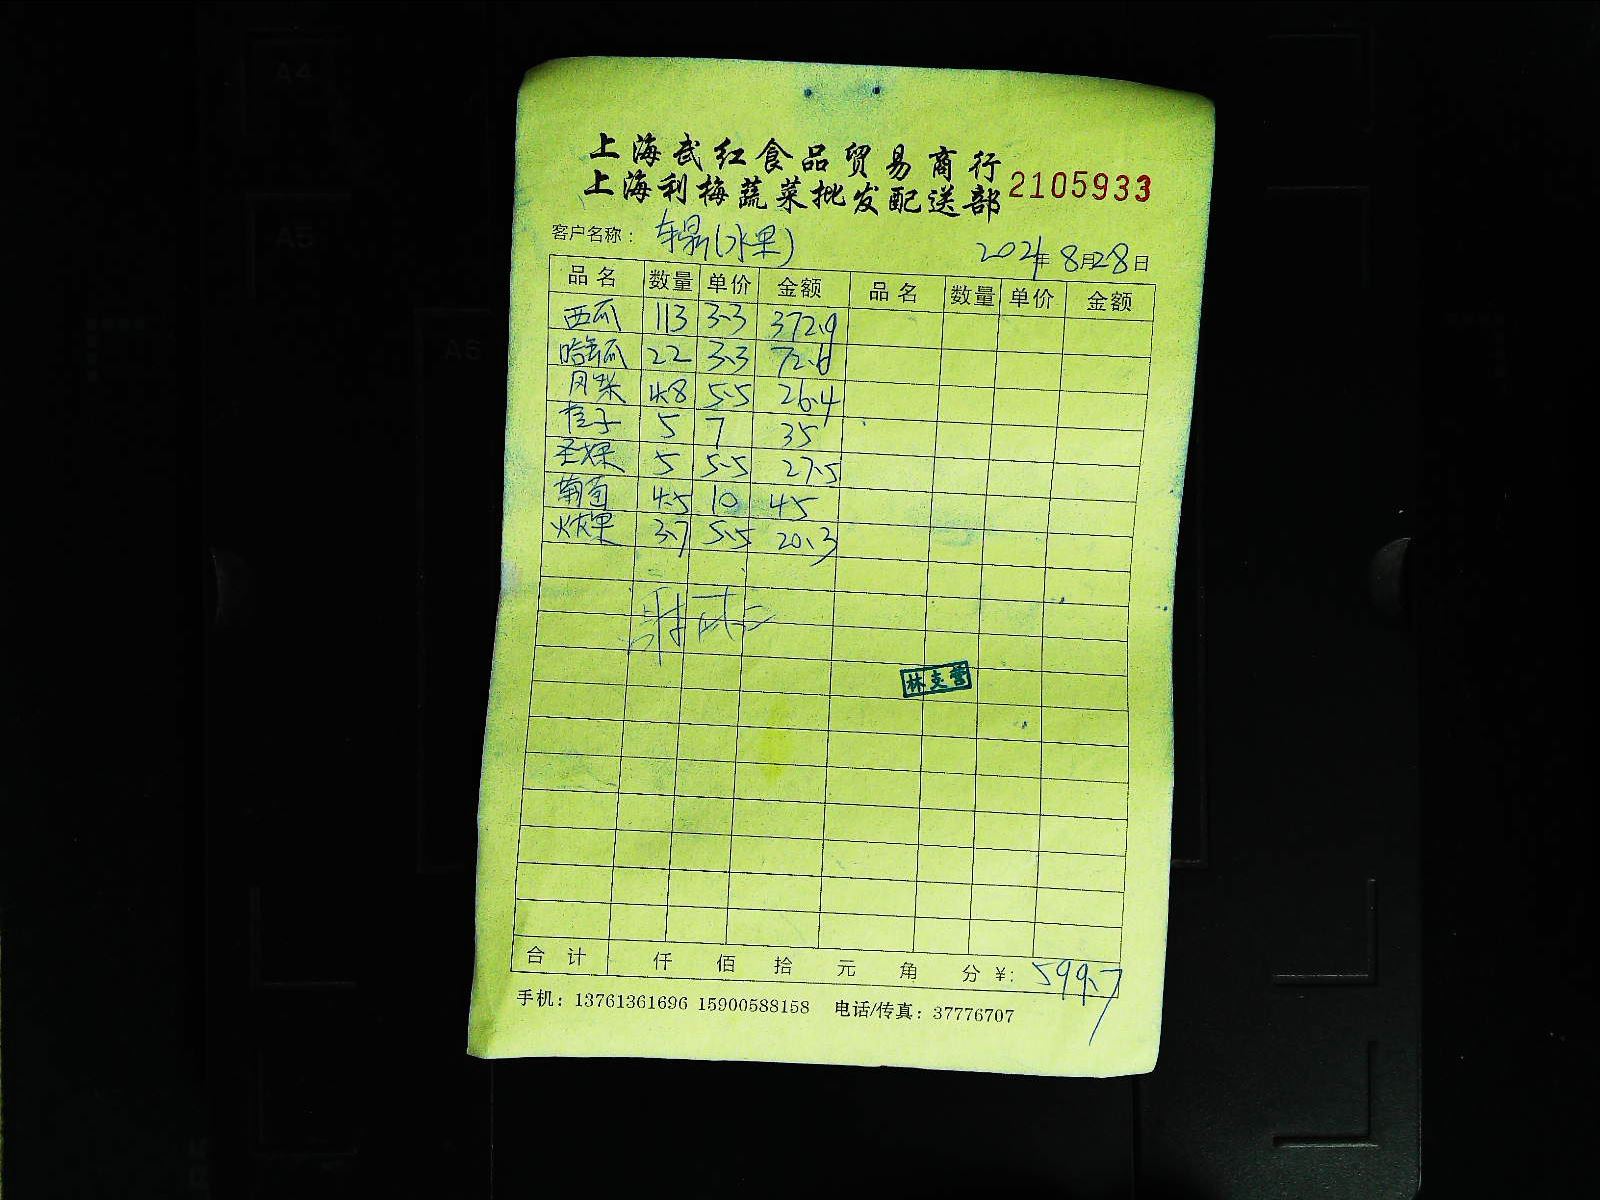 上海武红食品贸易商行
上海利梅蔬菜批发配送部 2105933
客户名称： 车易(水果) 2021年8月28日
品名 数量 单价 金额 品名 数量 单价 金额
西瓜 113 3.3 372.9
哈密瓜 22 3.3 72.6
4.8 5.5 26.4
桔子 5 7 35
圣女果 5 5.5 27.5
葡萄 4.5 10 45
火龙果 3.7 5.5 20.3
林支营
合计 仟 佰 拾 元 角 分 ¥: 599.7
手机：13761361696 15900588158 电话/传真：37776707
A4
A5
A6